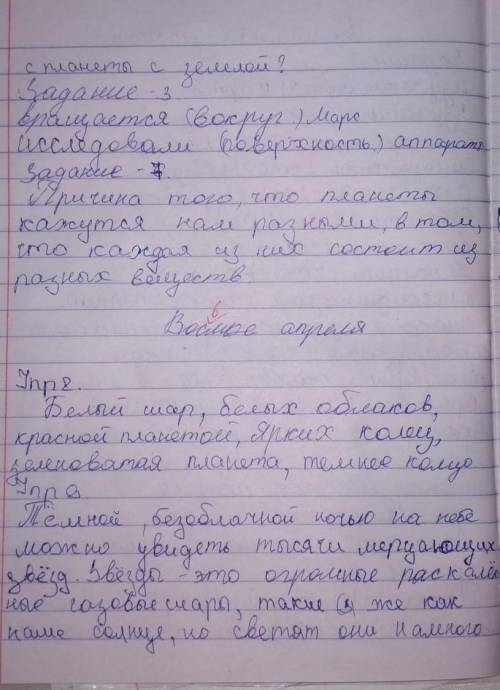 с планеты с земелой?
Задание - 3
вращается (вокруг) Марс
исследовали (поверхность) аппараты
Задание - 7.
Причина того, что планеты
кажутся нам разными, в том,
что каждая из них состоит из
разных веществ
Восьмое апреля
Упр 8.
Белый шар, белых облаков,
красной планетой, ярких колец,
зеленоватая планета, темнее кольцо
Упр 9
Тёмной, безоблачной ночью на небе
можно увидеть тысячи мерцающих
звёзд. Звёзды - это огромные раскалён
ные газовые шары, такие же как
наше солнце, но светят они намного